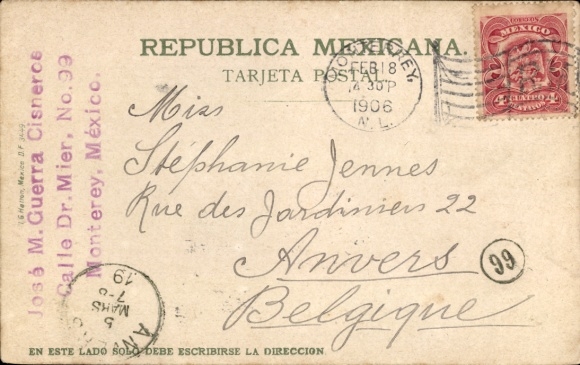 REPUBLICA MEXICANA.
TARJETA POSTAL.
CORREOS
MEXICO
4 CUATRO 4
CENTAVOS
MONTERREY,
FEB 18
30 P
1906
N. L.
José M. Guerra Cisneros
Calle Dr. Mier, No. 99
Monterey, México.
Miss
Stéphanie Jennes
Rue des Jardiniers 22
Anvers
Belgique
99
5
MARS
7-8
19
EN ESTE LADO SOLO DEBE ESCRIBIRSE LA DIRECCION